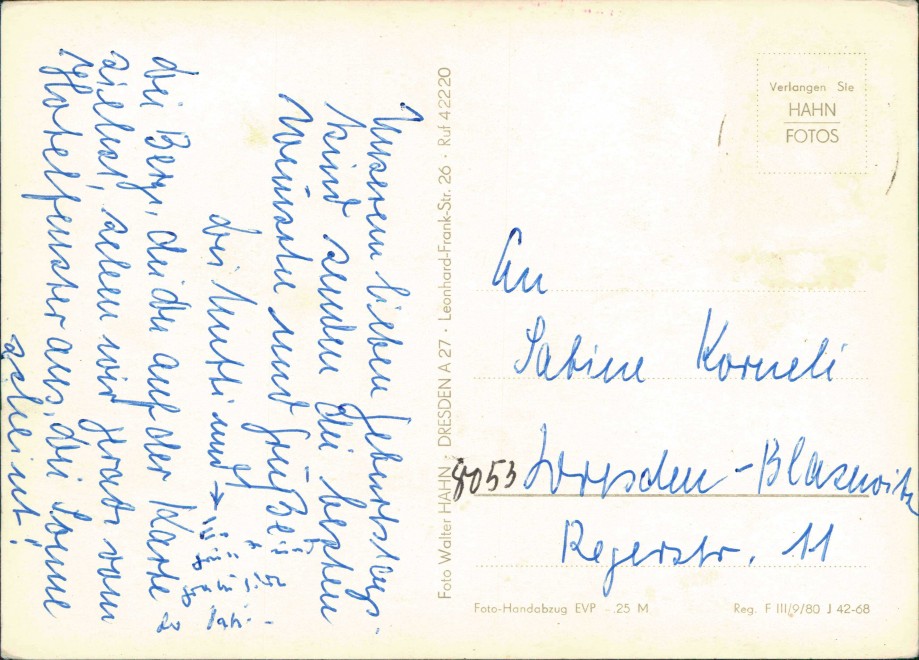 Unserem lieben Geburtstags-
kind senden die besten
Wünsche und Grüße
die Mutti und →
der Vati
die Berge, die du auf der Karte
siehst, sehen wir grade vom
Hotelfenster aus, die Sonne
scheint!
Foto Walter HAHN · DRESDEN A 27 · Leonhard-Frank-Str. 26 · Ruf 42220
Verlangen Sie
HAHN
FOTOS
An
Sabine Korneli
8053 Dresden-Blasewitz
Regerstr. 11
Foto-Handabzug EVP -.25 M
Reg. F III/9/80 J 42-68